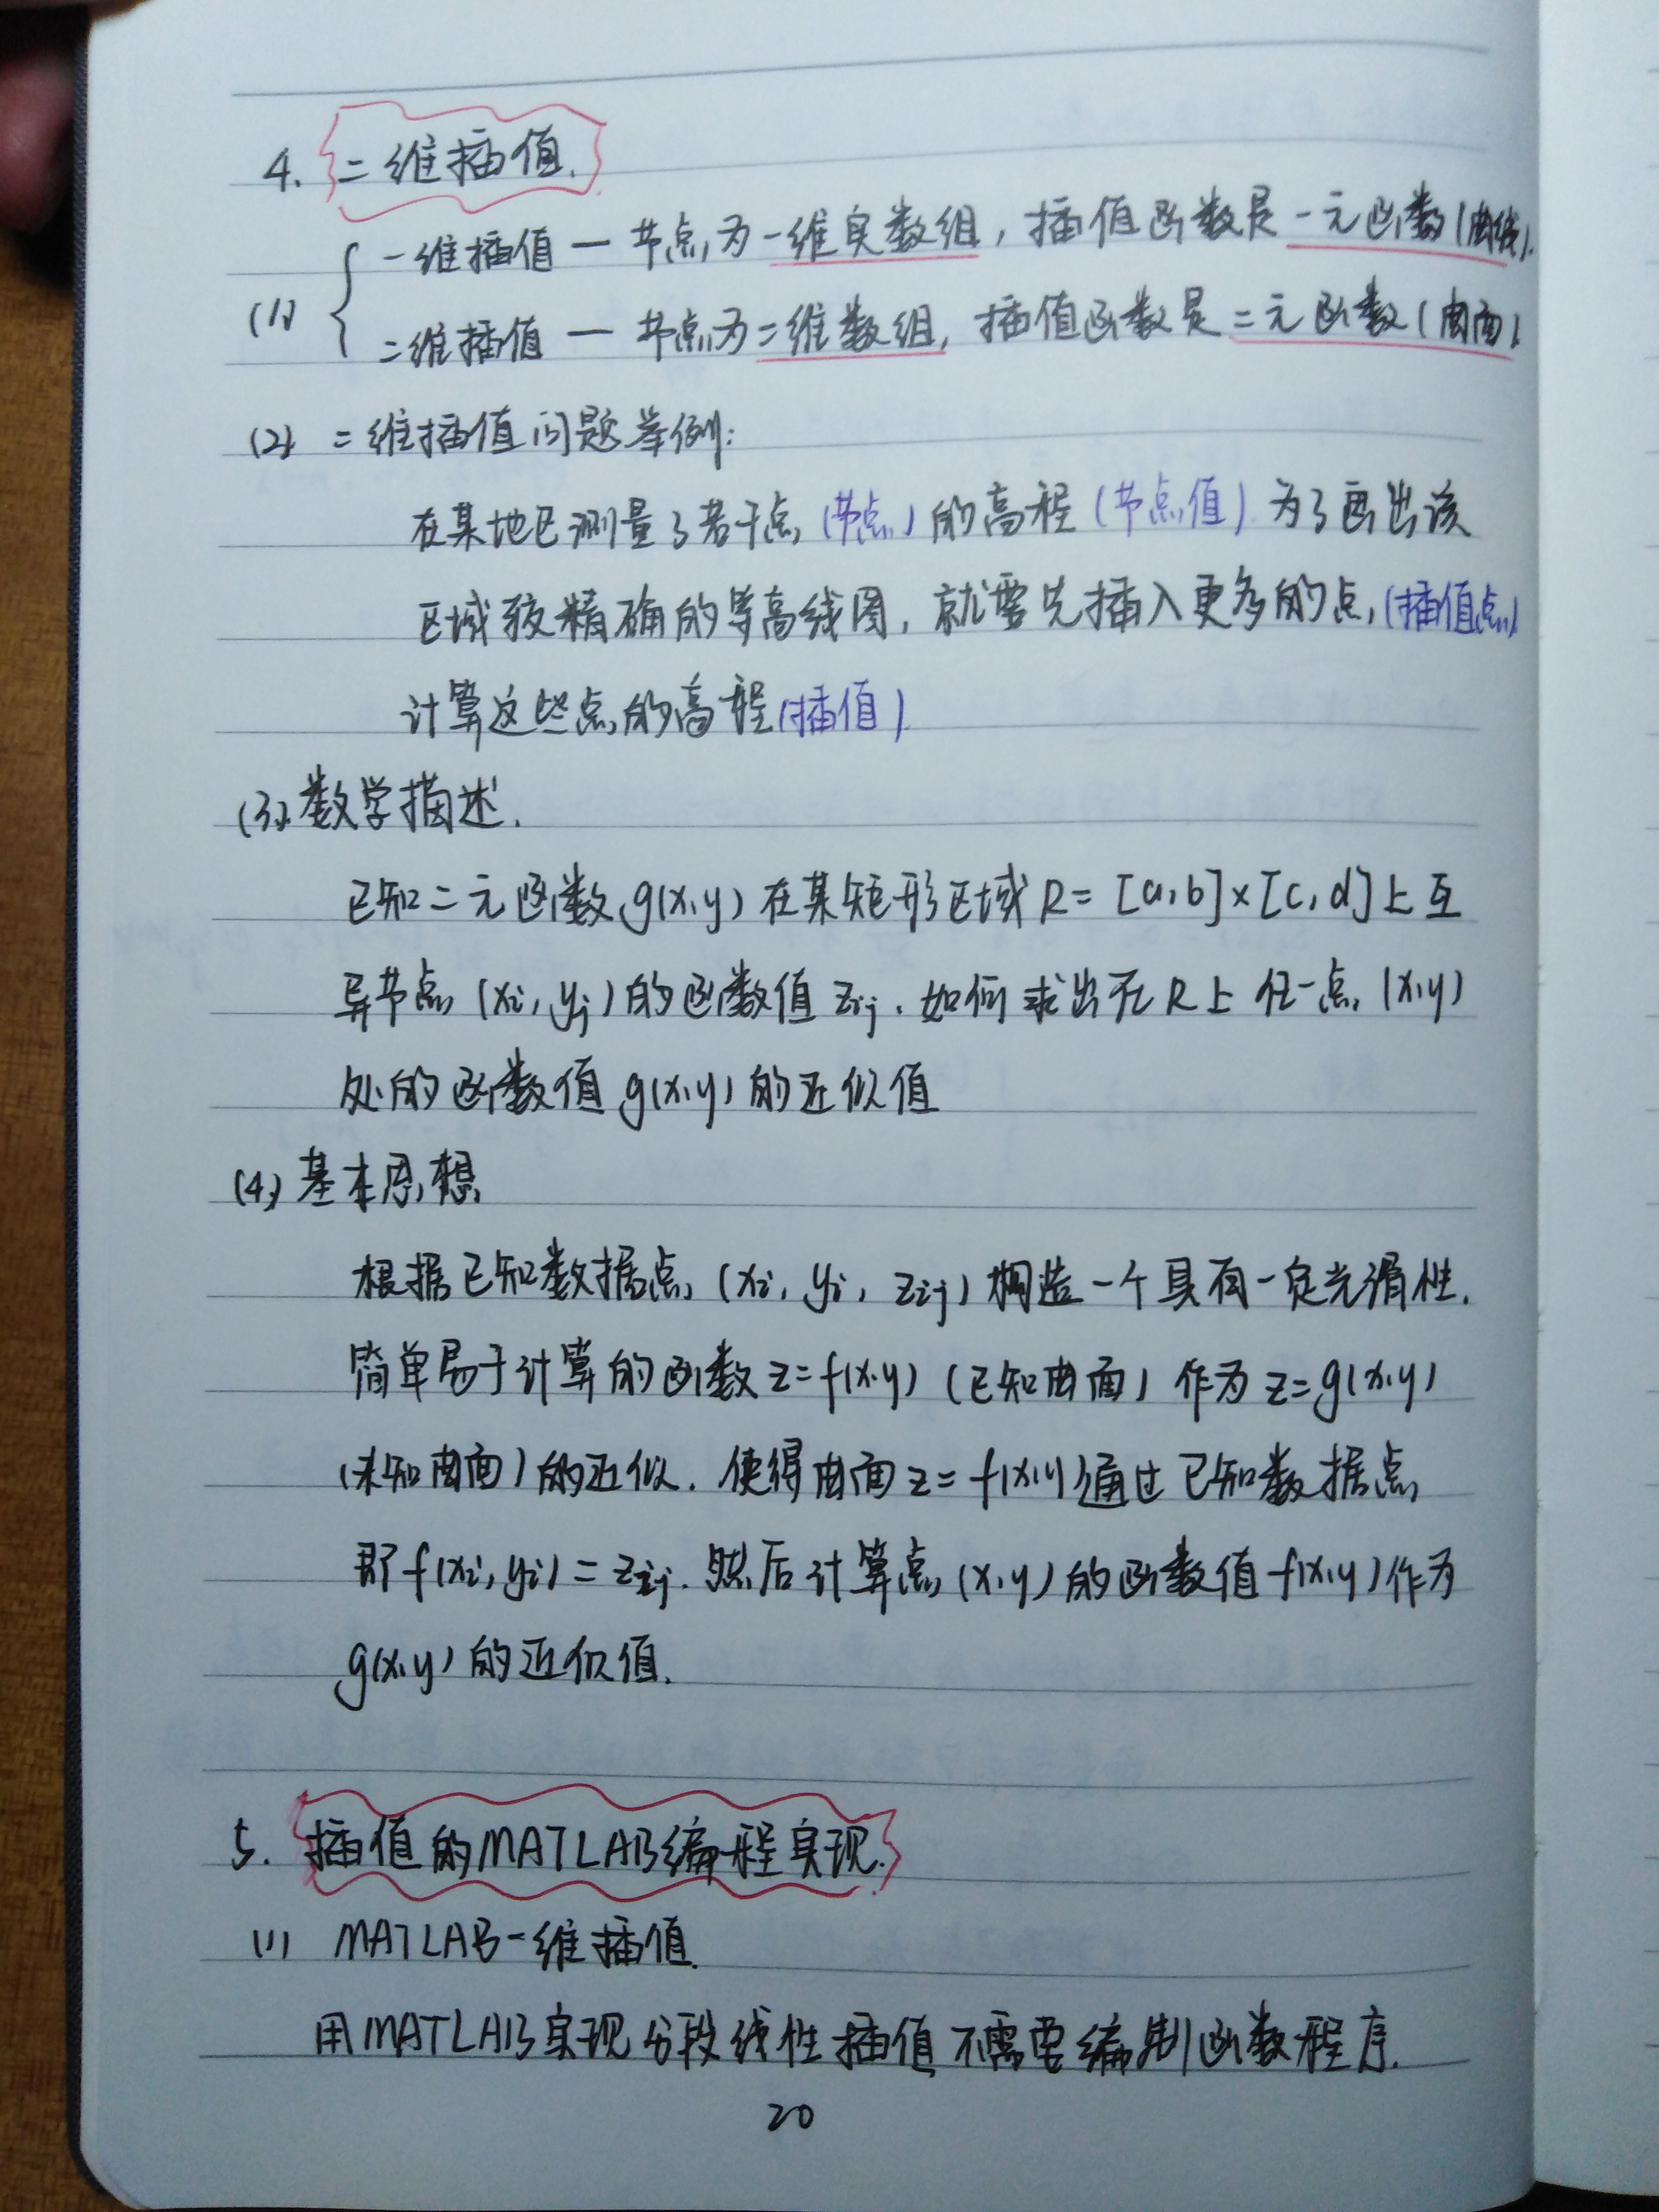 4. 二维插值.
一维插值 — 节点为一维实数组, 插值函数是一元函数(曲线).
(1)
二维插值 — 节点为二维数组, 插值函数是二元函数(曲面).
(2) 二维插值问题举例:
在某地已测量了若干点(节点)的高程(节点值). 为了画出该
区域较精确的等高线图, 就要先插入更多的点(插值点)
计算这些点的高程(插值)
(3) 数学描述.
已知二元函数g(x,y)在某矩形区域R=[a,b]×[c,d]上互
异节点(xi, yj)的函数值zij. 如何求出在R上任一点(x,y)
处的函数值g(x,y)的近似值
(4) 基本思想
根据已知数据点(xi, yi, zij)构造一个具有一定光滑性.
简单易于计算的函数z=f(x,y)(已知曲面)作为z=g(x,y)
(未知曲面)的近似. 使得曲面z=f(x,y)通过已知数据点
即f(xi,yi)=zij. 然后计算点(x,y)的函数值f(x,y)作为
g(x,y)的近似值.
5. 插值的MATLAB编程实现.
(1) MATLAB一维插值.
用MATLAB实现分段线性插值不需要编制函数程序.
20